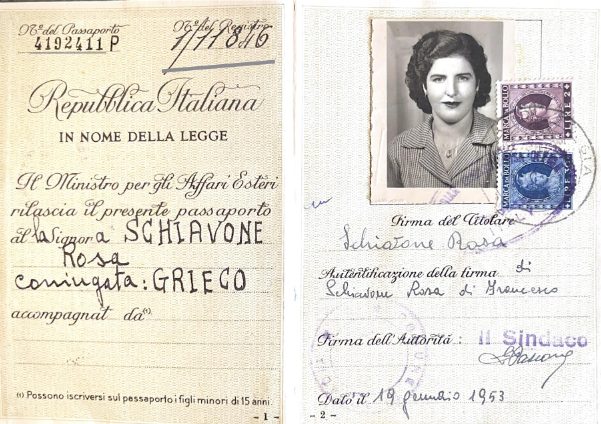 N.º del Passaporto
4192411 P
N.º del Registro
Repubblica Italiana
IN NOME DELLA LEGGE
Il Ministro per gli Affari Esteri
rilascia il presente passaporto
al la Signor a SCHIAVONE
Rosa
coniugata: GRIECO
accompagnat da (1)
(1) Possono iscriversi sul passaporto i figli minori di 15 anni.
- 1 -
MARCA DA BOLLO
LIRE 2
MARCA DA BOLLO
LIRE
Firma del Titolare
Schiavone Rosa
Autentificazione della firma di
Schiavone Rosa di Francesco
Firma dell'Autorità: Il Sindaco
Dato il 19 gennaio 1953
- 2 -